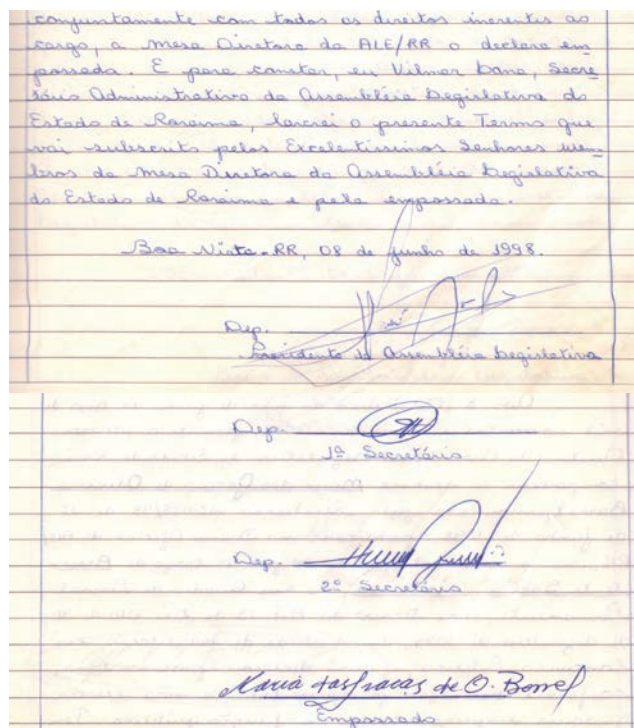 conjuntamente com todos os direitos inerentes ao
cargo, a Mesa Diretora da ALE/RR o declara em
possada. E para constar, eu Vilmar Lana, Secre
tário Administrativo da Assembléia Legislativa do
Estado de Roraima, lavrei o presente Termo que
vai subscrito pelos Excelentíssimos Senhores mem
bros da Mesa Diretora da Assembléia Legislativa
do Estado de Roraima e pela empossada.
Boa Vista-RR, 08 de junho de 1998.
Dep.
Presidente da Assembléia Legislativa
Dep.
1º Secretário
Dep.
2º Secretário
Maria das Graças de O. Borrel
Empossado